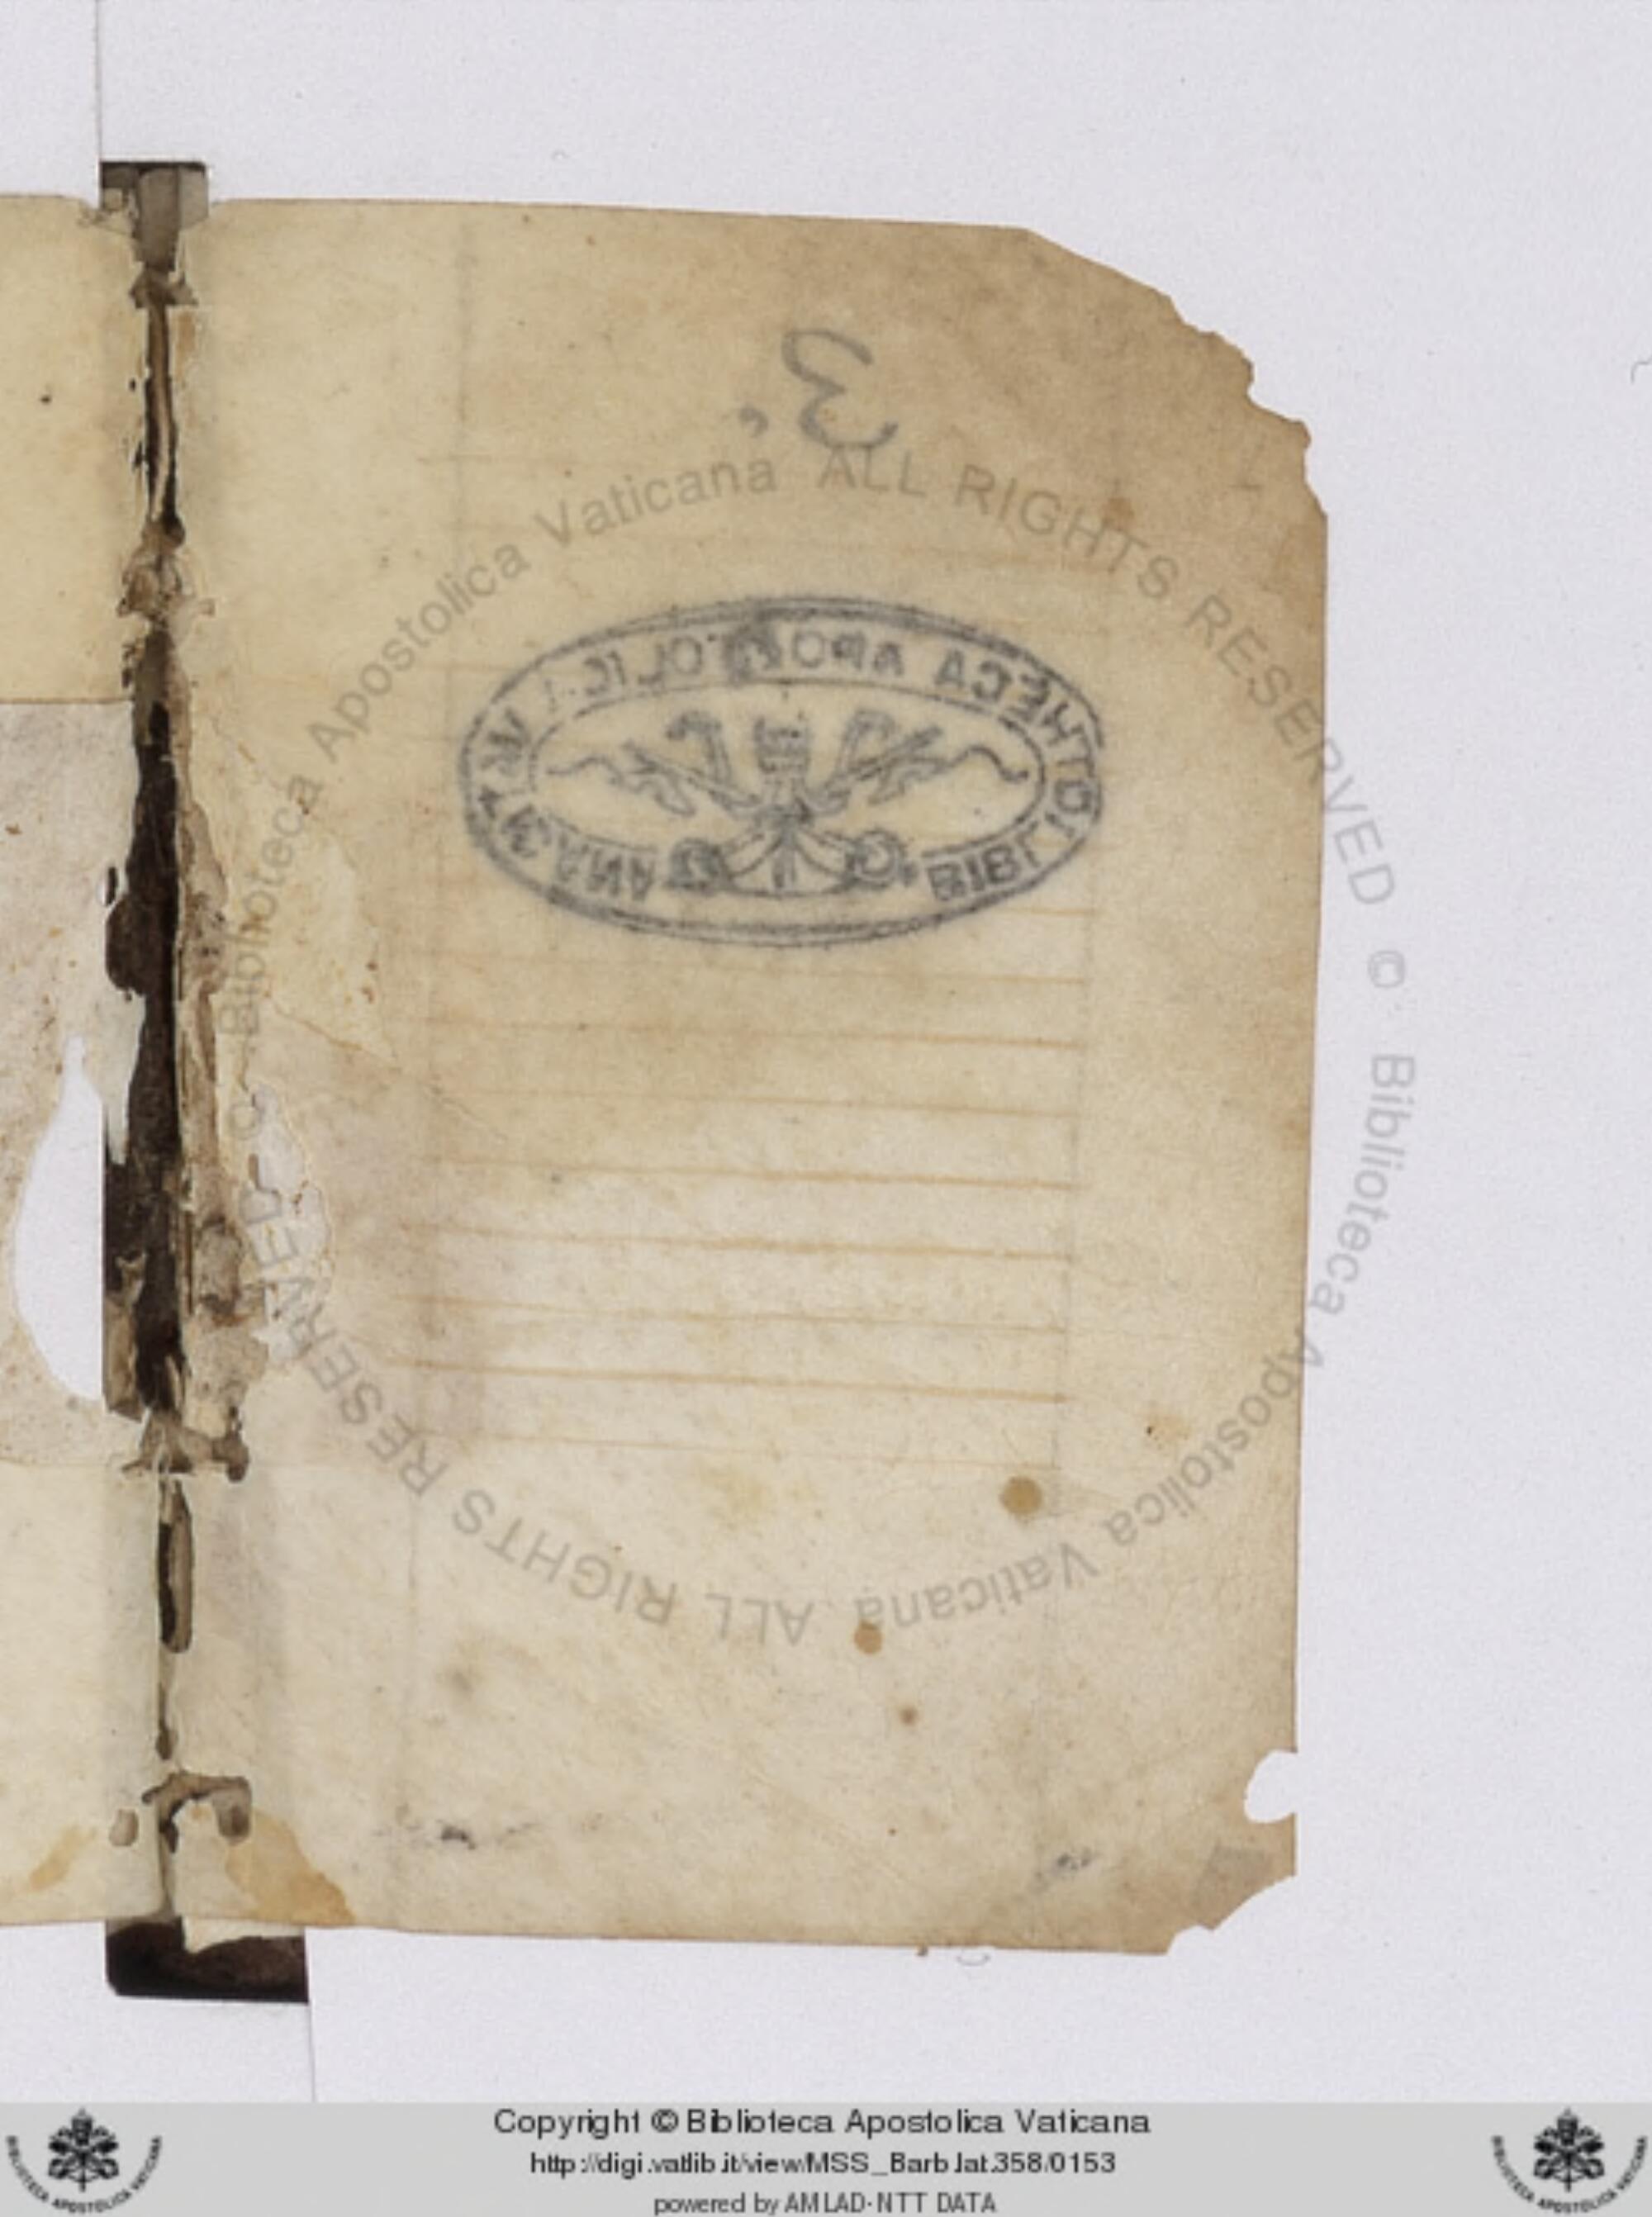 3.
BIBLIOTHECA APOSTOLICA VATICANA
© Biblioteca Apostolica Vaticana ALL RIGHTS RESERVED © Biblioteca Apostolica Vaticana ALL RIGHTS RESERVED
Copyright © Biblioteca Apostolica Vaticana
http://digi.vatlib.it/view/MSS_Barb.lat.358/0153
powered by AMLAD-NTT DATA
BIBLIOTECA APOSTOLICA VATICANA
BIBLIOTECA APOSTOLICA VATICANA